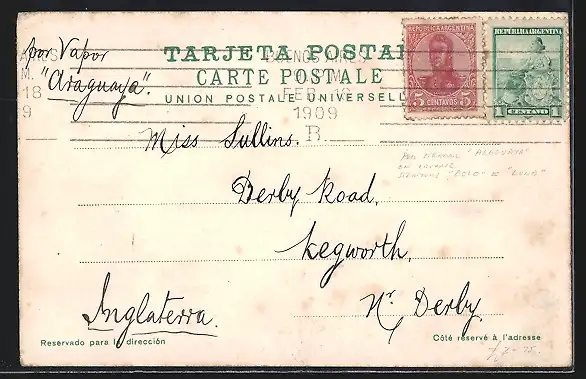 por Vapor
"Araguaya".
TARJETA POSTAL
CARTE POSTALE
UNION POSTALE UNIVERSELLE
BUENOS AIRES
FEB 18
1909
B
REPUBLICA ARGENTINA
5 CENTAVOS 5
REPUBLICA ARGENTINA
1 CENTAVO 1
Miss Sullins.
Derby Road,
Kegworth,
Nr. Derby.
Inglaterra.
"ARAGUAYA"
Reservado para la dirección
Côté réservé à l'adresse